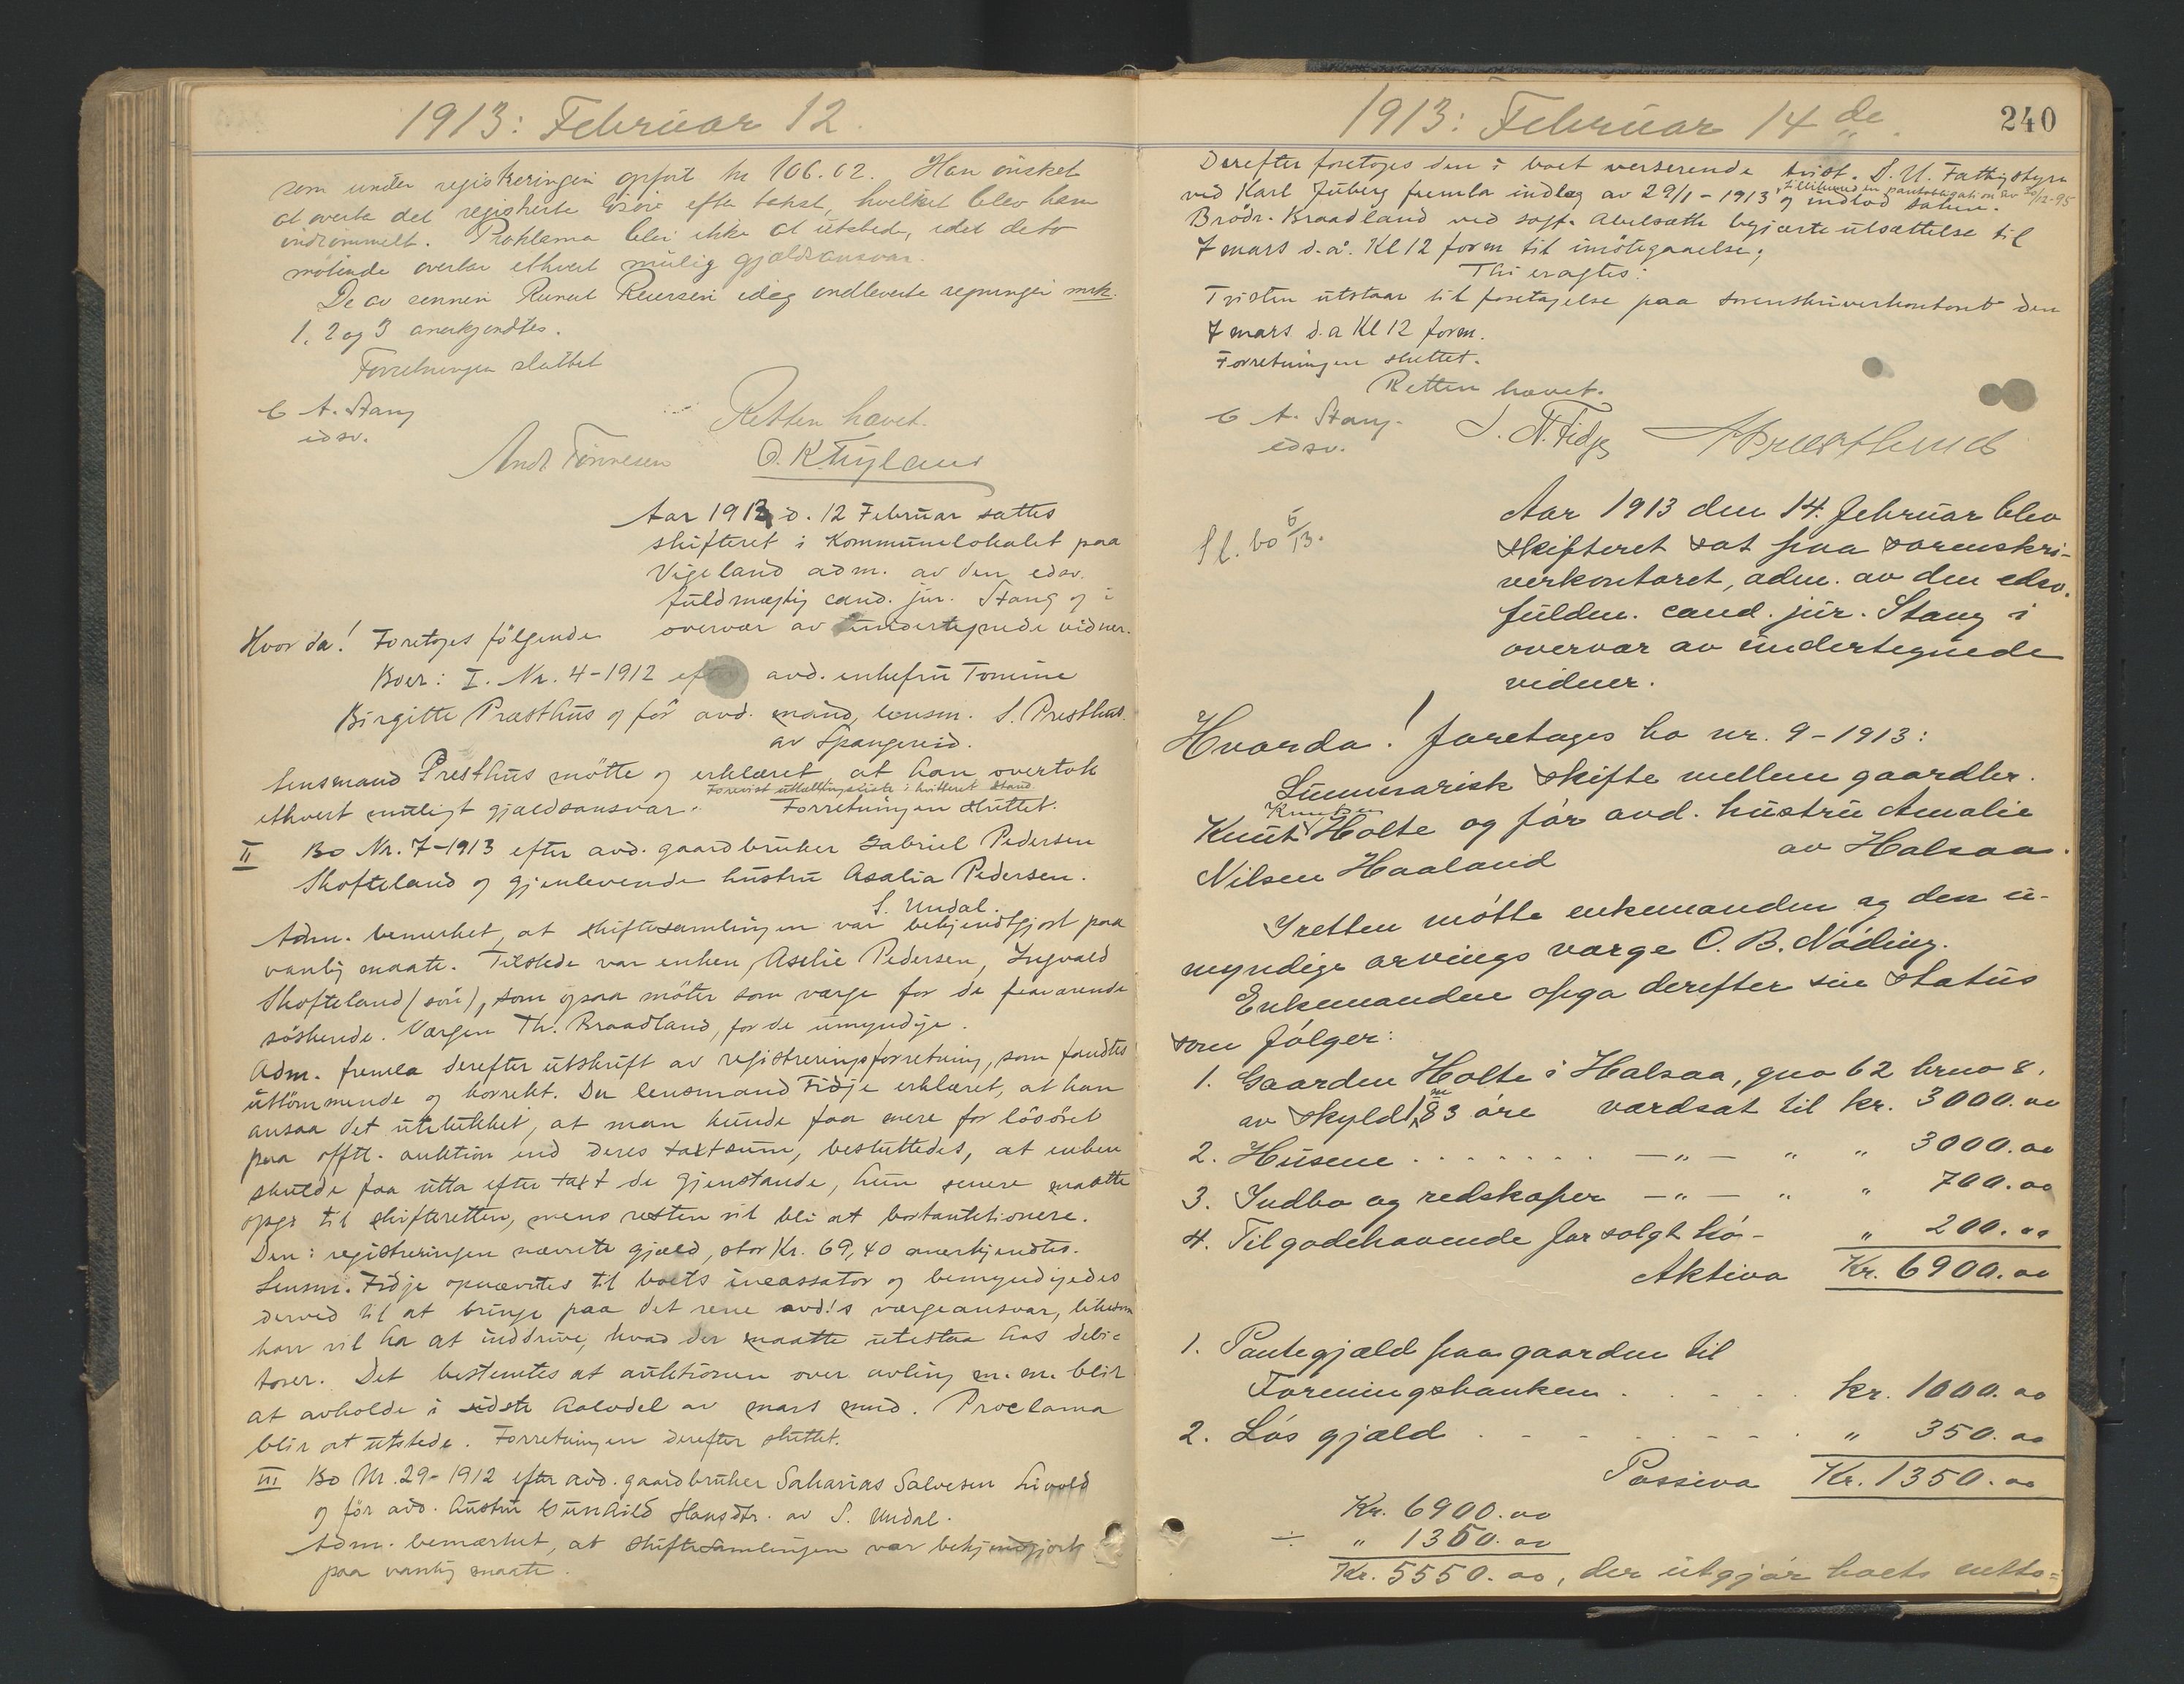 1913: Februar 12.
som under registreringen opført kr 106.02. Han ønsket
at overta det registrerte løsøre efter takst, hvilket blev ham
indrømmet. Proklama blir ikke at utstede, idet de to
møtende overtar ethvert mulig gjældsansvar.
De av sønnen Reiersen idag indleverte regninger mrk.
1, 2 og 3 anerkjendtes.
Forretningen sluttet
Retten hævet.
C A. Stang
edsv.
Andr Tønnesen
Aar 1913 d. 12 Februar sattes
skifteret i Kommunelokalet paa
Vigeland adm. av den edsv.
fuldmægtig cand. jur. Stang og i
overvær av undertegnede vidner.
Hvor da! Foretoges følgende
Boer: I. Nr. 4-1912 efter avd. enkefru Tomine
Birgitte Præsthus og før avd. mand, lensm. S. Presthus
av Spangereid.
Lensmand Presthus møtte og erklæret at han overtok
Forevist utlællingsliste i kvitteret stand.
ethvert muligt gjældsansvar. Forretningen sluttet.
II Bo Nr. 7-1913 efter avd. gaardbruker Gabriel Pedersen
Skofteland og gjenlevende hustru Asalia Pedersen.
S. Undal.
Adm. bemerket, at skiftesamlingen var bekjendtgjort paa
vanlig maate. Tilstede var enken Aselie Pedersen, Ingvald
Skofteland (søn), som ogsaa møter som værge for de fraværende
søskende. Værgen Th. Braadland, for de umyndige.
Adm. fremla derefter utskrift av registreringsforretning, som fandtes
uttømmende og korrekt. Da lensmand Fidje erklæret, at han
ansaa det utelukket, at man kunde faa mere for løsøret
paa offtl. auktion end deres taxtsum, besluttedes, at enken
skulde faa utta efter taxt de gjenstande, hun senere maatte
opgi til skifteretten, mens resten vil bli at bortauktionere.
Den i registreringen nævnte gjæld, stor Kr. 69,40 anerkjendtes.
Lensm. Fidje opnævntes til boets incassator og bemyndigedes
derved til at bringe paa det rene avd!s værgeansvar, likesom
han vil ha at inddrive, hvad der maatte utestaa hos debi-
torer. Det bestemtes at auktionen over avling m. m. blir
at avholde i sidste halvdel av mars mnd. Proclama
blir at utstede. Forretningen derefter sluttet.
III Bo Nr. 29-1912 efter avd. gaardbruker Sakarias Salvesen Livold
og før avd. hustru Gunhild Hansdtr. av S. Undal.
Adm. bemærket, at skiftesamlingen var bekjendtgjort
paa vanlig maate.
1913: Februar 14 de.
240
Derefter foretoges den i boet verserende tvist. S. U. Fattigstyre
ved Karl Juberg fremla indlæg av 29/1-1913, tillikemed en pantobligation av 20/12-95 og indlod saken.
Brødr. Braadland ved sagf. Abelsæth begjærte utsættelse til
7 mars d.a. Kl 12 form til imøtegaaelse;
Thi eragtes:
Tvisten utstaar til foretagelse paa sorenskriverkontoret den
7 mars d.a Kl 12 form.
Forretningen sluttet.
Retten hævet.
C A. Stang.
edsv.
S. N. Fidje
Sl. bo 5/13.
Aar 1913 den 14. februar blev
skifteret sat paa sorenskri-
verkontoret, adm. av den edsv.
fuldm. cand. jur. Stang i
overvær av undertegnede
vidner.
Hvorda! foretoges bo nr. 9-1913:
Summarisk skifte mellem gaardbr.
Knut Knutsen Holte og før avd. hustru Amalie
Nilsen Haaland av Halsaa.
I retten møtte enkemanden og den u-
myndige arvings værge O. B. Nøding.
Enkemanden opga derefter sin status
som følger:
1. Gaarden Holte i Halsaa, gno 62 brno 8,
av skyld 1 m 83 øre værdsat til kr. 3000.00
2. Husene . . . . . . . —„— „ „ 3000.00
3. Indbo og redskaper —„— „ „ 700.00
4. Tilgodehavende for solgt hø - „ 200.00
Aktiva Kr. 6900.00
1. Pantegjæld paa gaarden til
Foreningsbanken . . . . . kr. 1000.00
2. Løs gjæld . . . . . . . „ 350.00
Passiva Kr. 1350.00
Kr. 6900.00
÷ „ 1350.00
Kr. 5550.00, der utgjør boets netto=